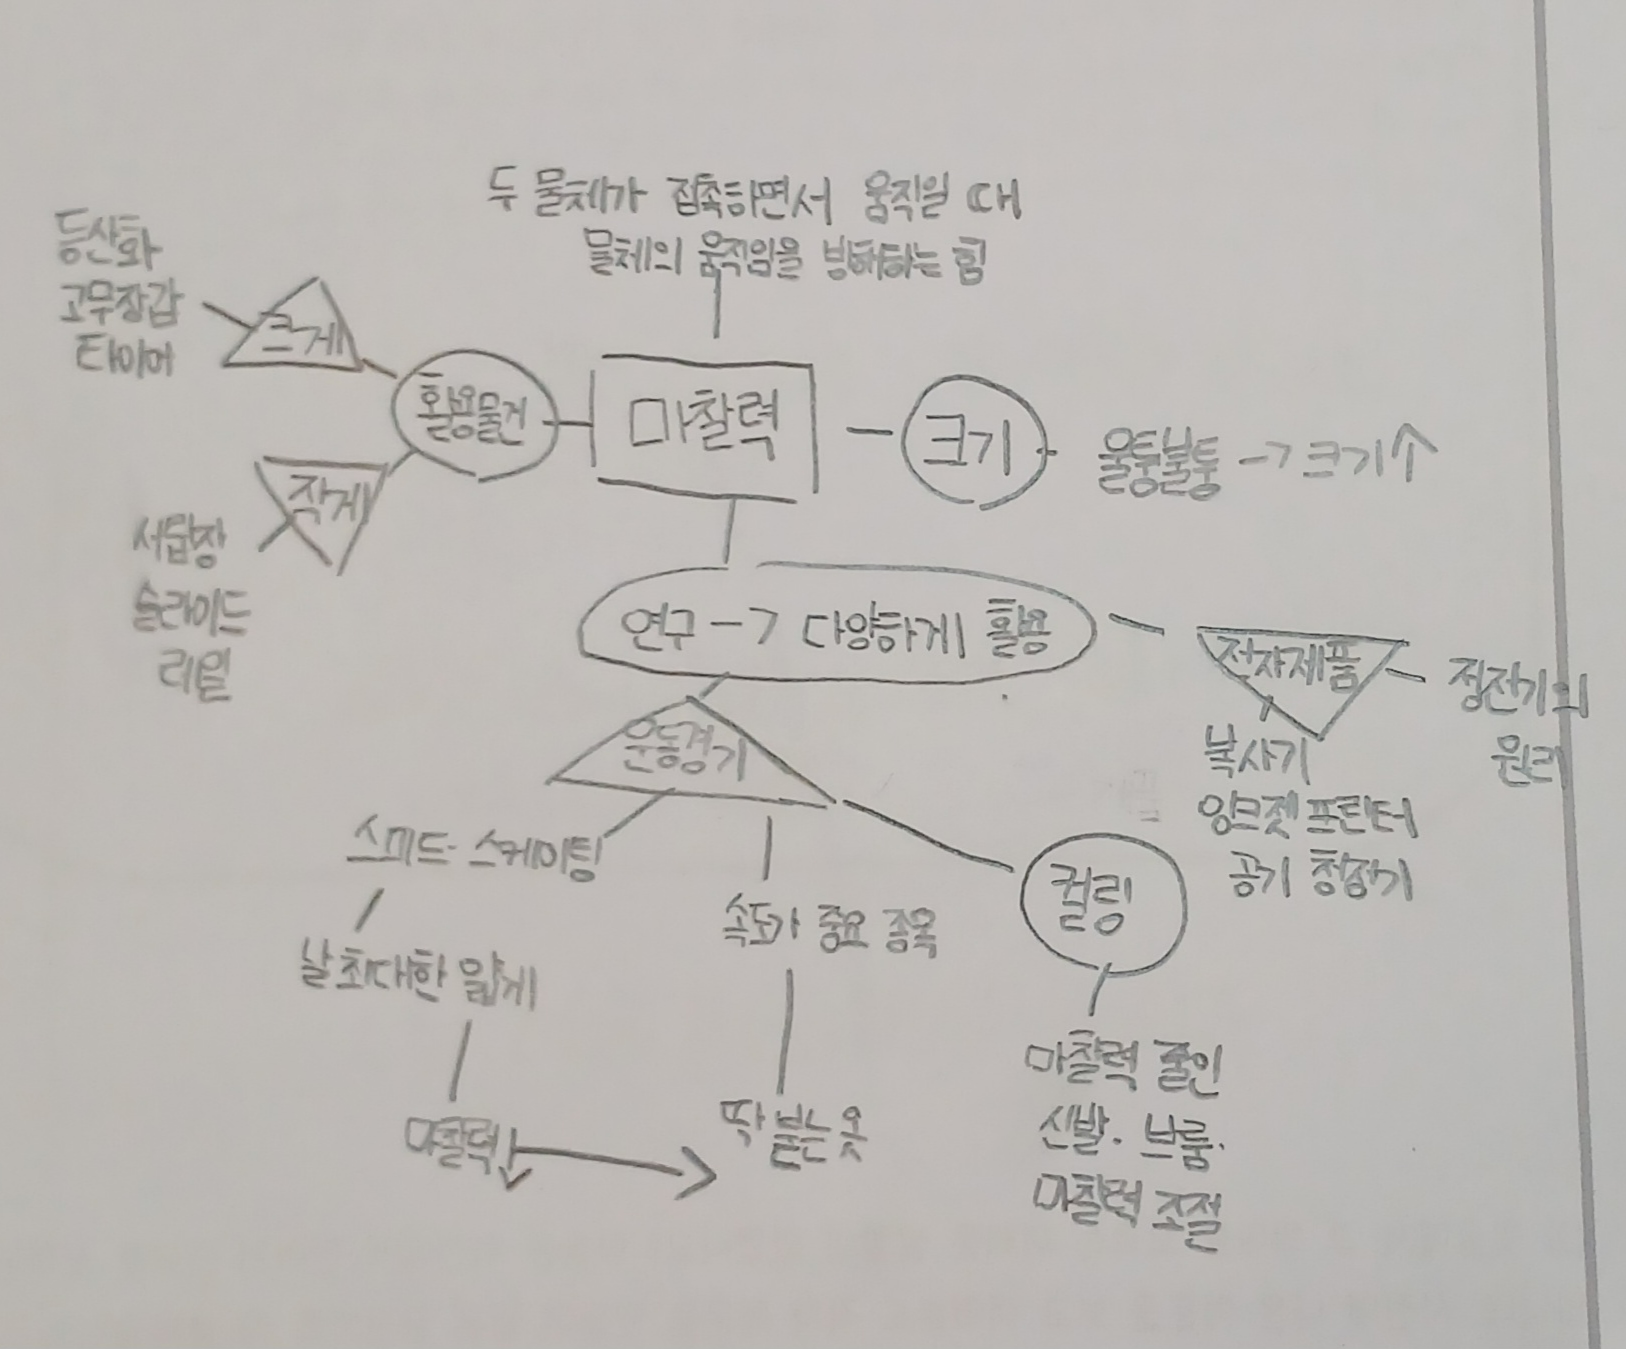 두 물체가 접촉하면서 움직일 때
물체의 움직임을 방해하는 힘
등산화
고무장갑
타이어
크게
활용물건
마찰력
크기
울퉁불퉁 -> 크기↑
작게
서랍장
슬라이드
레일
연구 -> 다양하게 활용
전자제품
정전기의
원리
복사기
잉크젯 프린터
공기 청정기
운동경기
스피드 스케이팅
날 최대한 얇게
마찰력↓
속도가 중요 종목
딱 붙는 옷
컬링
마찰력 줄인
신발. 브룸.
마찰력 조절